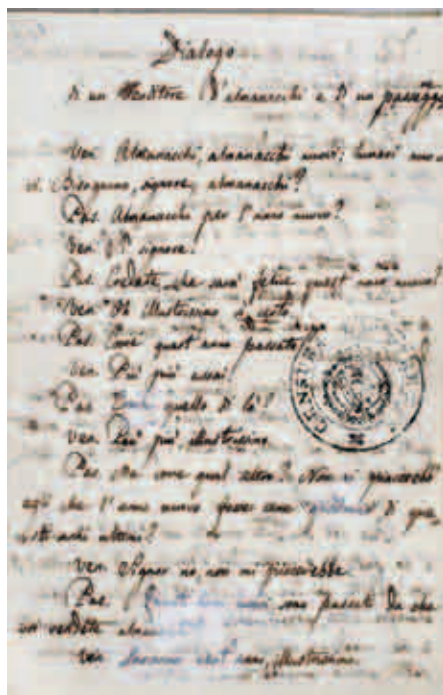 Dialogo
di un Venditore d'almanacchi e di un passegg
Ven. Almanacchi, almanacchi nuovi; lunari nuo
vi. Bisognano, signore, almanacchi?
Pas. Almanacchi per l'anno nuovo?
Ven. Si signore.
Pas. Credete che sarà felice quest'anno nuovo?
Ven. Oh illustrissimo si, certo.
Pas. Come quest'anno passato?
Ven. Più più assai.
Pas. Come quello di là?
Ven. Più più, illustrissimo.
Pas. Ma come qual altro? Non vi piacerebb
egli che l'anno nuovo fosse come di que
sti anni ultimi?
Ven. Signor no, non mi piacerebbe.
Pas. anni nuovi sono passati da che
voi vendete almanacchi?
Ven. vent'anni, illustrissimo.
CENSURA